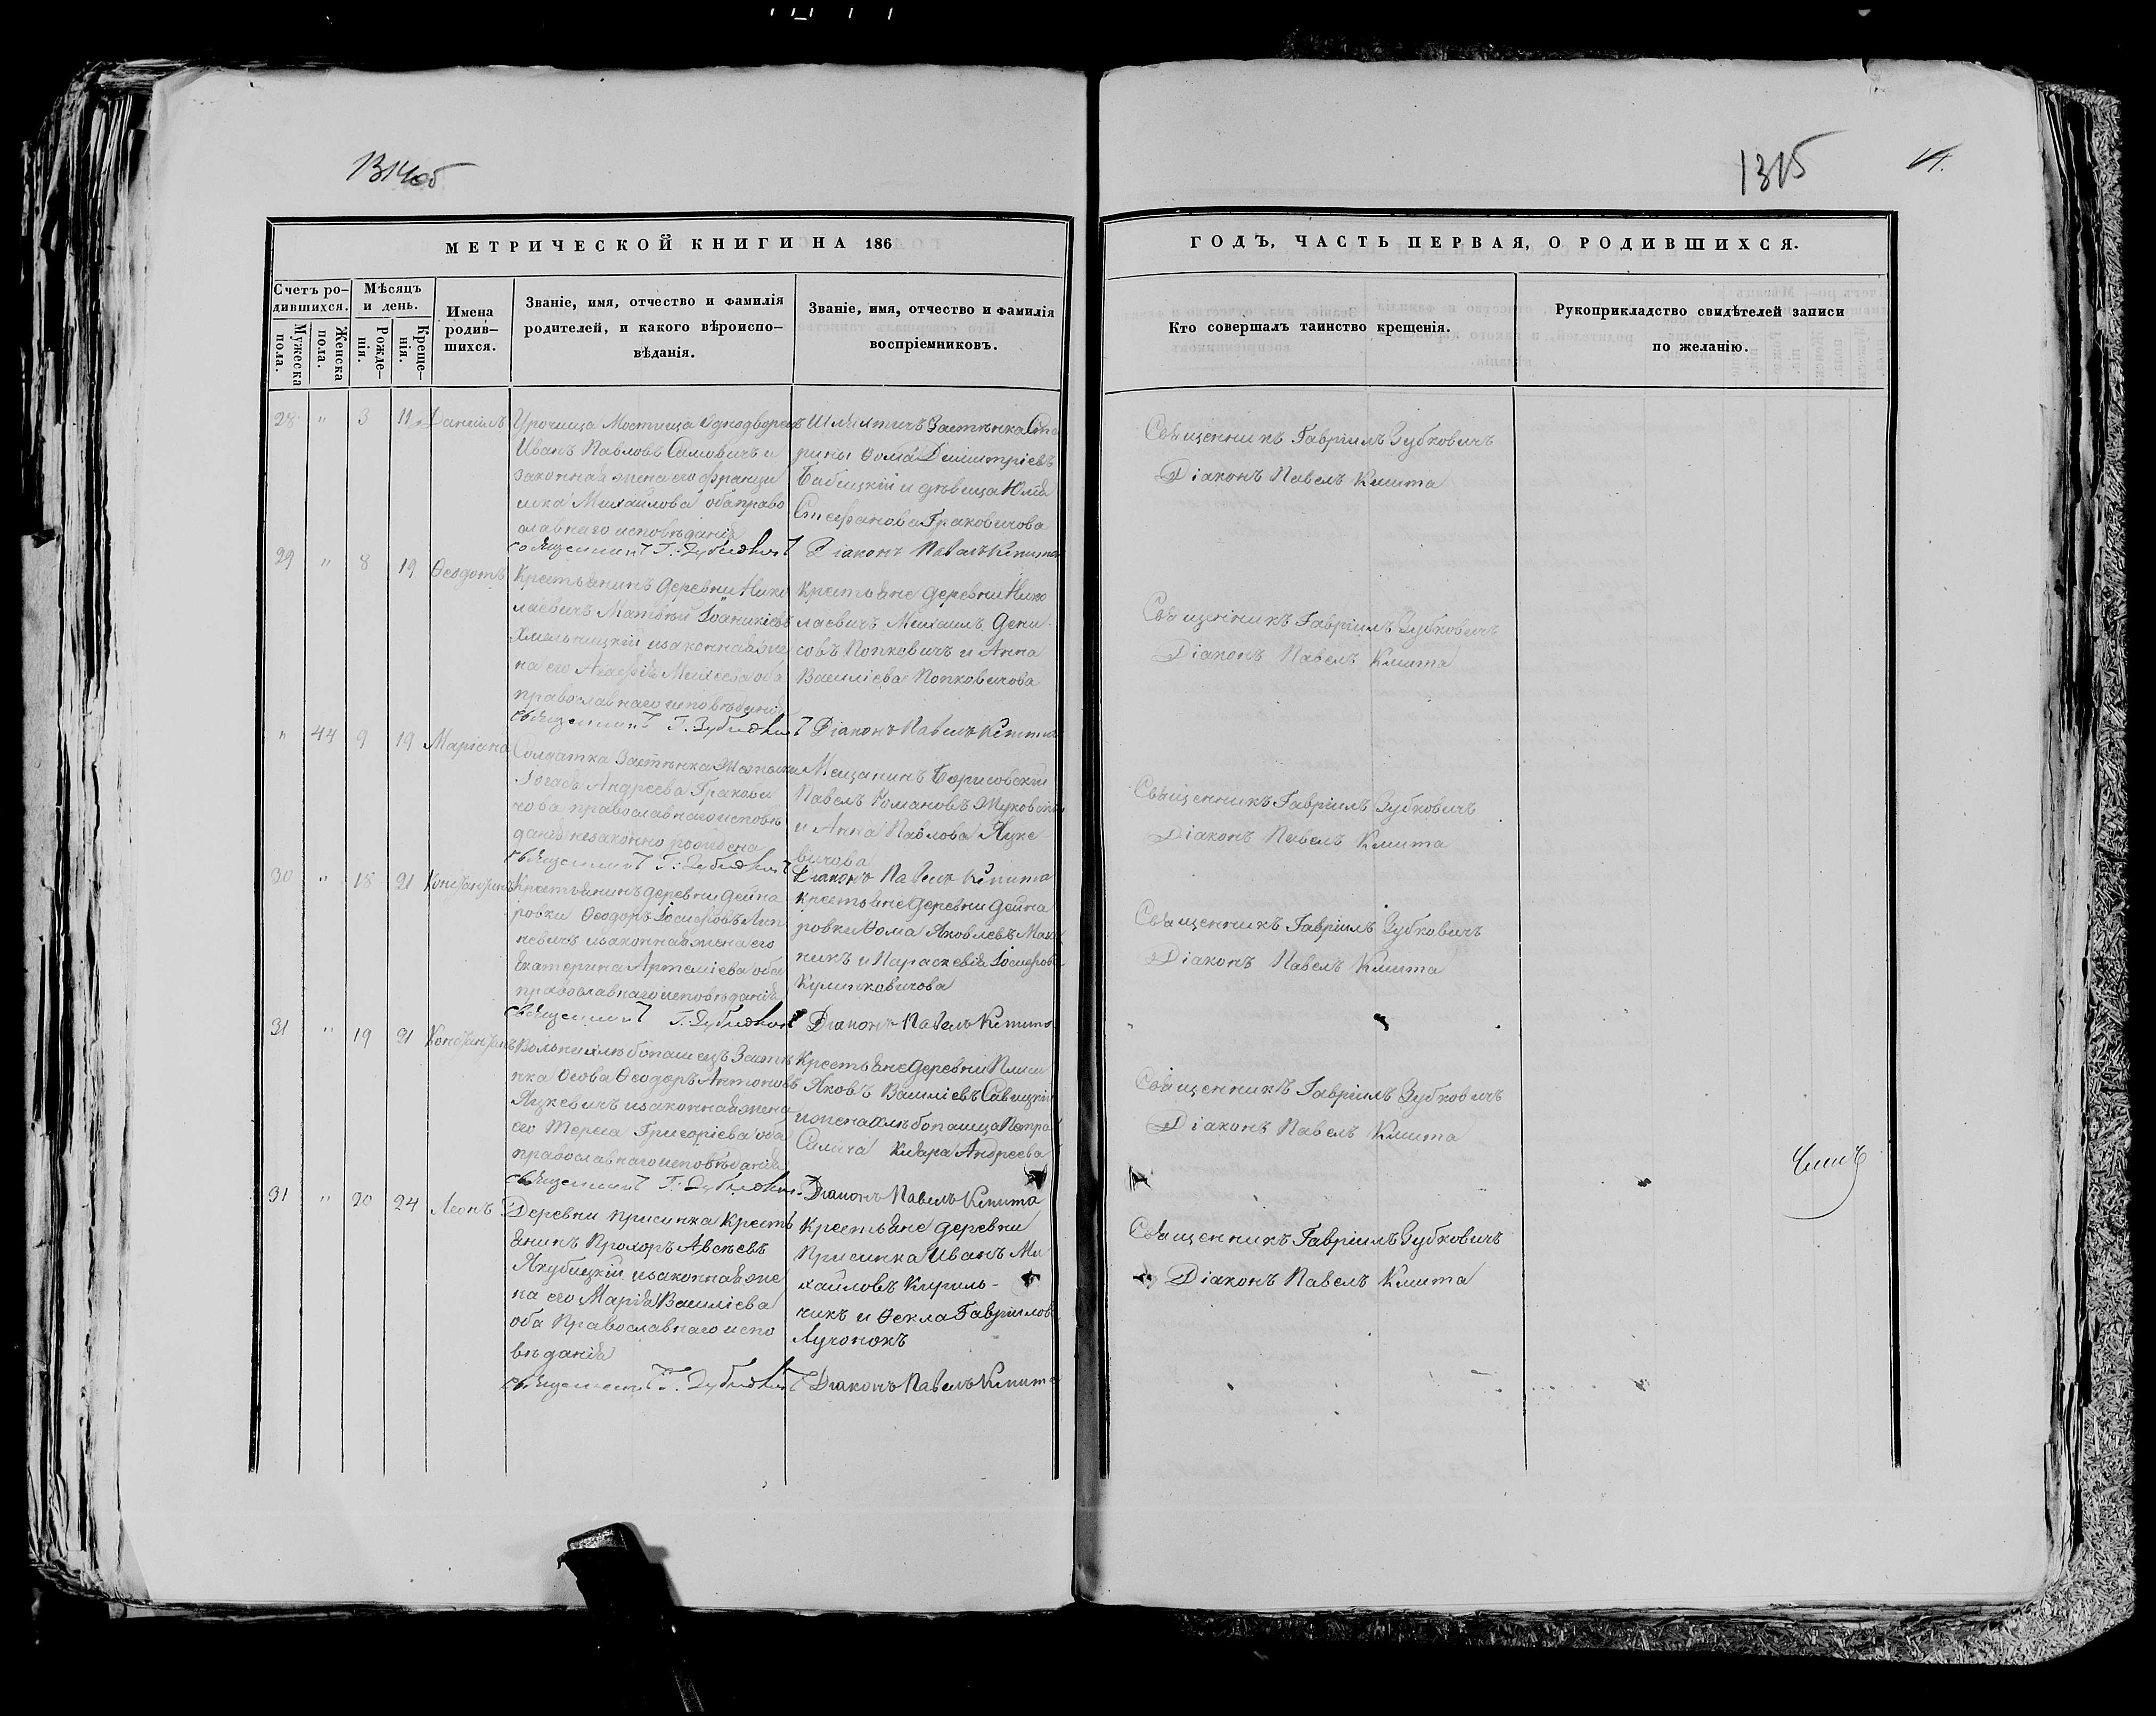 1314об
1315
МЕТРИЧЕСКОЙ КНИГИ НА 186
ГОДЪ, ЧАСТЬ ПЕРВАЯ, О РОДИВШИХСЯ.
Счетъ ро-
дившихся.
Мужеска
пола.
Женска
пола.
Мѣсяцъ
и день.
Рожде-
нія.
Креще-
нія.
Имена
родив-
шихся.
Званіе, имя, отчество и фамилія
родителей, и какого вѣроиспо-
вѣданія.
Званіе, имя, отчество и фамилія
воспріемниковъ.
Кто совершалъ таинство крещенія.
Рукоприкладство свидѣтелей записи
по желанію.
28 " 3 11 Даніилъ
Урочища Мостища Однодворецъ
Иванъ Павловъ Самовичъ и
законная жена его Францы
шка Михайлова оба право
славнаго исповѣданія
Священникъ Г. Зубковичъ
Шляхтичъ Застѣнка Ста
рины Ѳома Димитріевъ
Бабицкій и дѣвица Юлія
Стефанова Граковичова
Діаконъ Павелъ Кмита
Священникъ Гавріилъ Зубковичъ
Діаконъ Павелъ Кмита
29 " 8 19 Ѳеодотъ
Крестьянинъ деревни Нико
лаевичъ Матѳей Іоаникіевъ
Хмельницкій и законная же
на его Агафія Михеева оба
православнаго исповѣданія
Священникъ Г. Зубковичъ
Крестьяне деревни Нико
лаевичъ Михаилъ Дени
совъ Попковичъ и Анна
Василіева Попковичова
Діаконъ Павелъ Кмита
Священникъ Гавріилъ Зубковичъ
Діаконъ Павелъ Кмита
" 44 9 19 Маріанна
Солдатка Застѣнка
Андреева Гракови
чова православнаго исповѣ
данія незаконно рождена
Священникъ Г. Зубковичъ
Мещанинъ Борисовскій
Павелъ Романовъ Жуковскій
и Анна Павлова Яцке
вичова
Діаконъ Павелъ Кмита
Священникъ Гавріилъ Зубковичъ
Діаконъ Павелъ Кмита
30 " 18 21 Константинъ
Крестьянинъ деревни Дейна
ровки Ѳеодоръ Іосифовъ Лин
кевичъ и законная жена его
Екатерина Артеміева оба
православнаго исповѣданія
Священникъ Г. Зубковичъ
Крестьяне деревни Дейна
ровки Ѳома Яковлевъ
никъ и Параскевія Іосифова
Кулинковичова
Діаконъ Павелъ Кмита
Священникъ Гавріилъ Зубковичъ
Діаконъ Павелъ Кмита
31 " 19 21 Константинъ
Вольный хлѣбопашецъ Застѣ
нка Осова Ѳеодоръ Антоновъ
Яцкевичъ и законная жена
его Тереса Григоріева оба
православнаго исповѣданія
Священникъ Г. Зубковичъ
Крестьяне деревни
Яковъ Василіевъ Савицкій
и жена хлѣбопашца Петра
Клара Андреева
Діаконъ Павелъ Кмита
Священникъ Гавріилъ Зубковичъ
Діаконъ Павелъ Кмита
31 " 20 24 Леонъ
Деревни Присинка Кресть
янинъ Прохоръ Авсѣевъ
Якубицкій и законная же
на его Марія Василіева
оба Православнаго испо
вѣданія
Священникъ Г. Зубковичъ
Крестьяне деревни
Присинка Иванъ Ми
хайловъ Кириль-
чикъ и Ѳекла Гавріилова
Лучонокъ
Діаконъ Павелъ Кмита
Священникъ Гавріилъ Зубковичъ
Діаконъ Павелъ Кмита